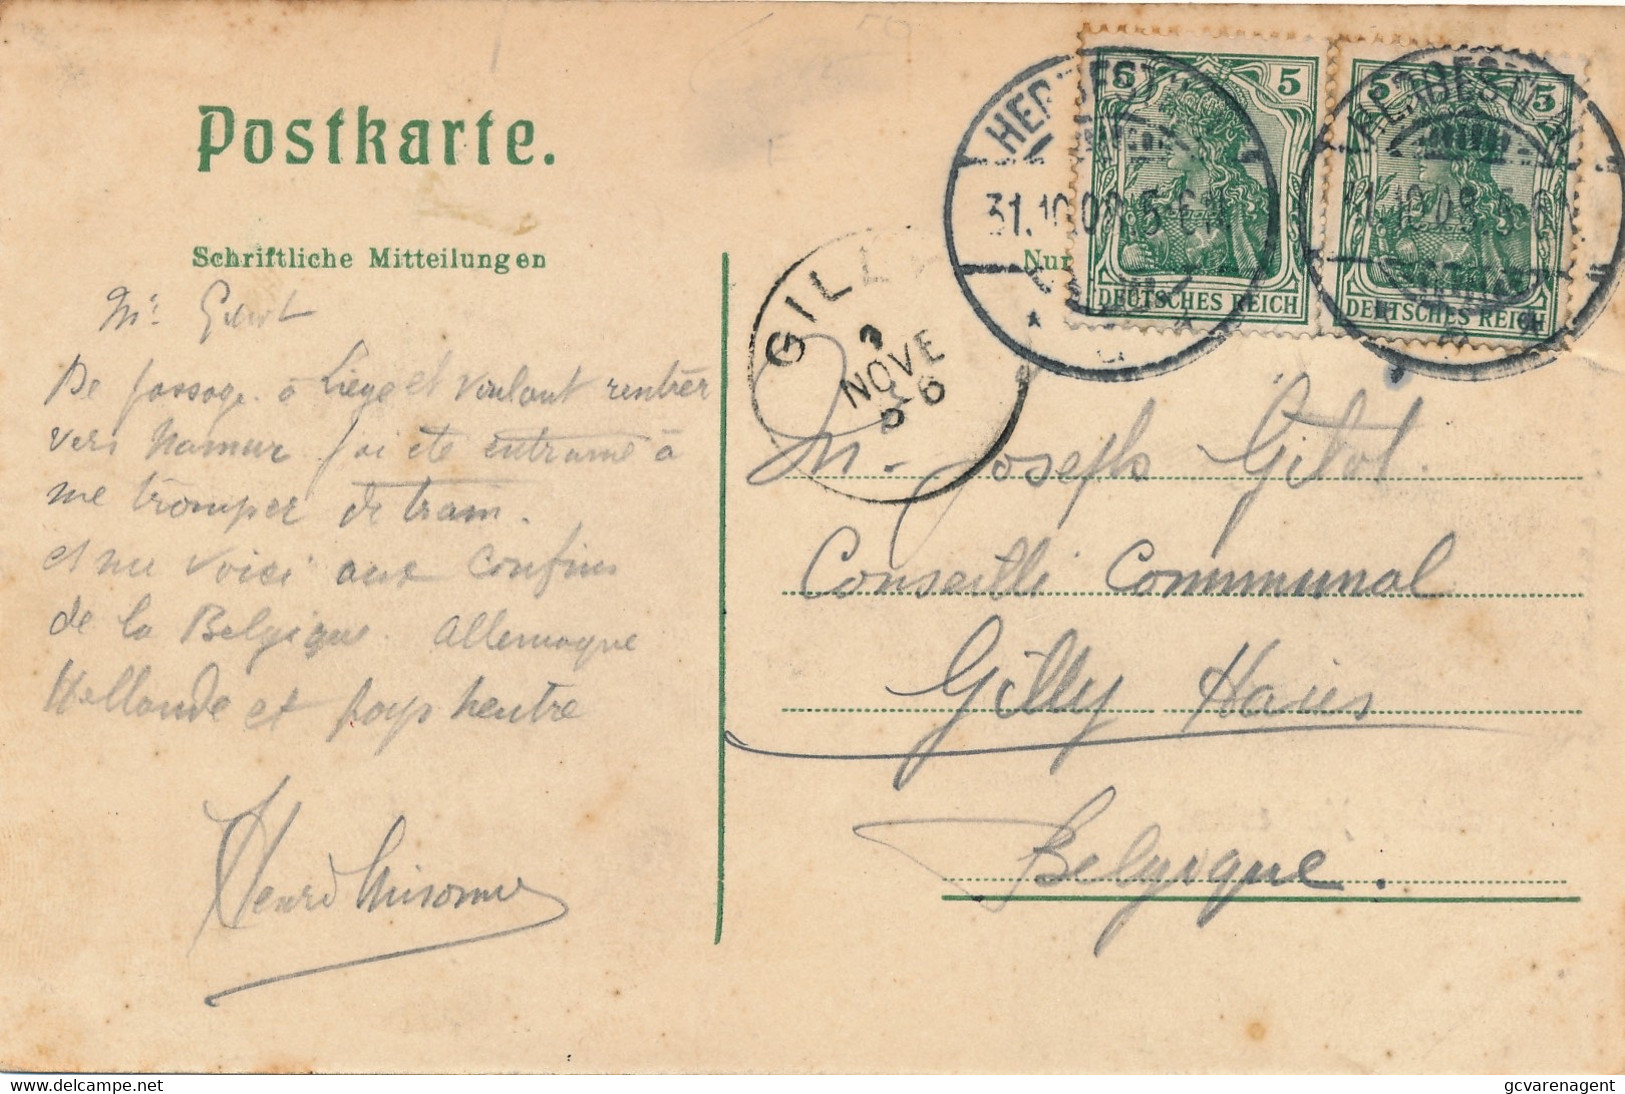 Postkarte.
Schriftliche Mitteilungen
Mr. Gilot
De passage à Liège et voulant rentrer
vers Namur j'ai été entrainé à
me tromper de tram.
et me voici aux confins
de la Belgique. Allemagne
Hollande et pays neutre
Henri
GILLY
NOVE
Nur
HERBESTHAL
31.10.08.5-6N
5 5
DEUTSCHES REICH
HERBESTHAL
31.10.08.5-6N
5 5
DEUTSCHES REICH
M. Joseph Gilot.
Conseille Communal
Gilly Haies
Belgique.
delcampe.net
gcvarenagent